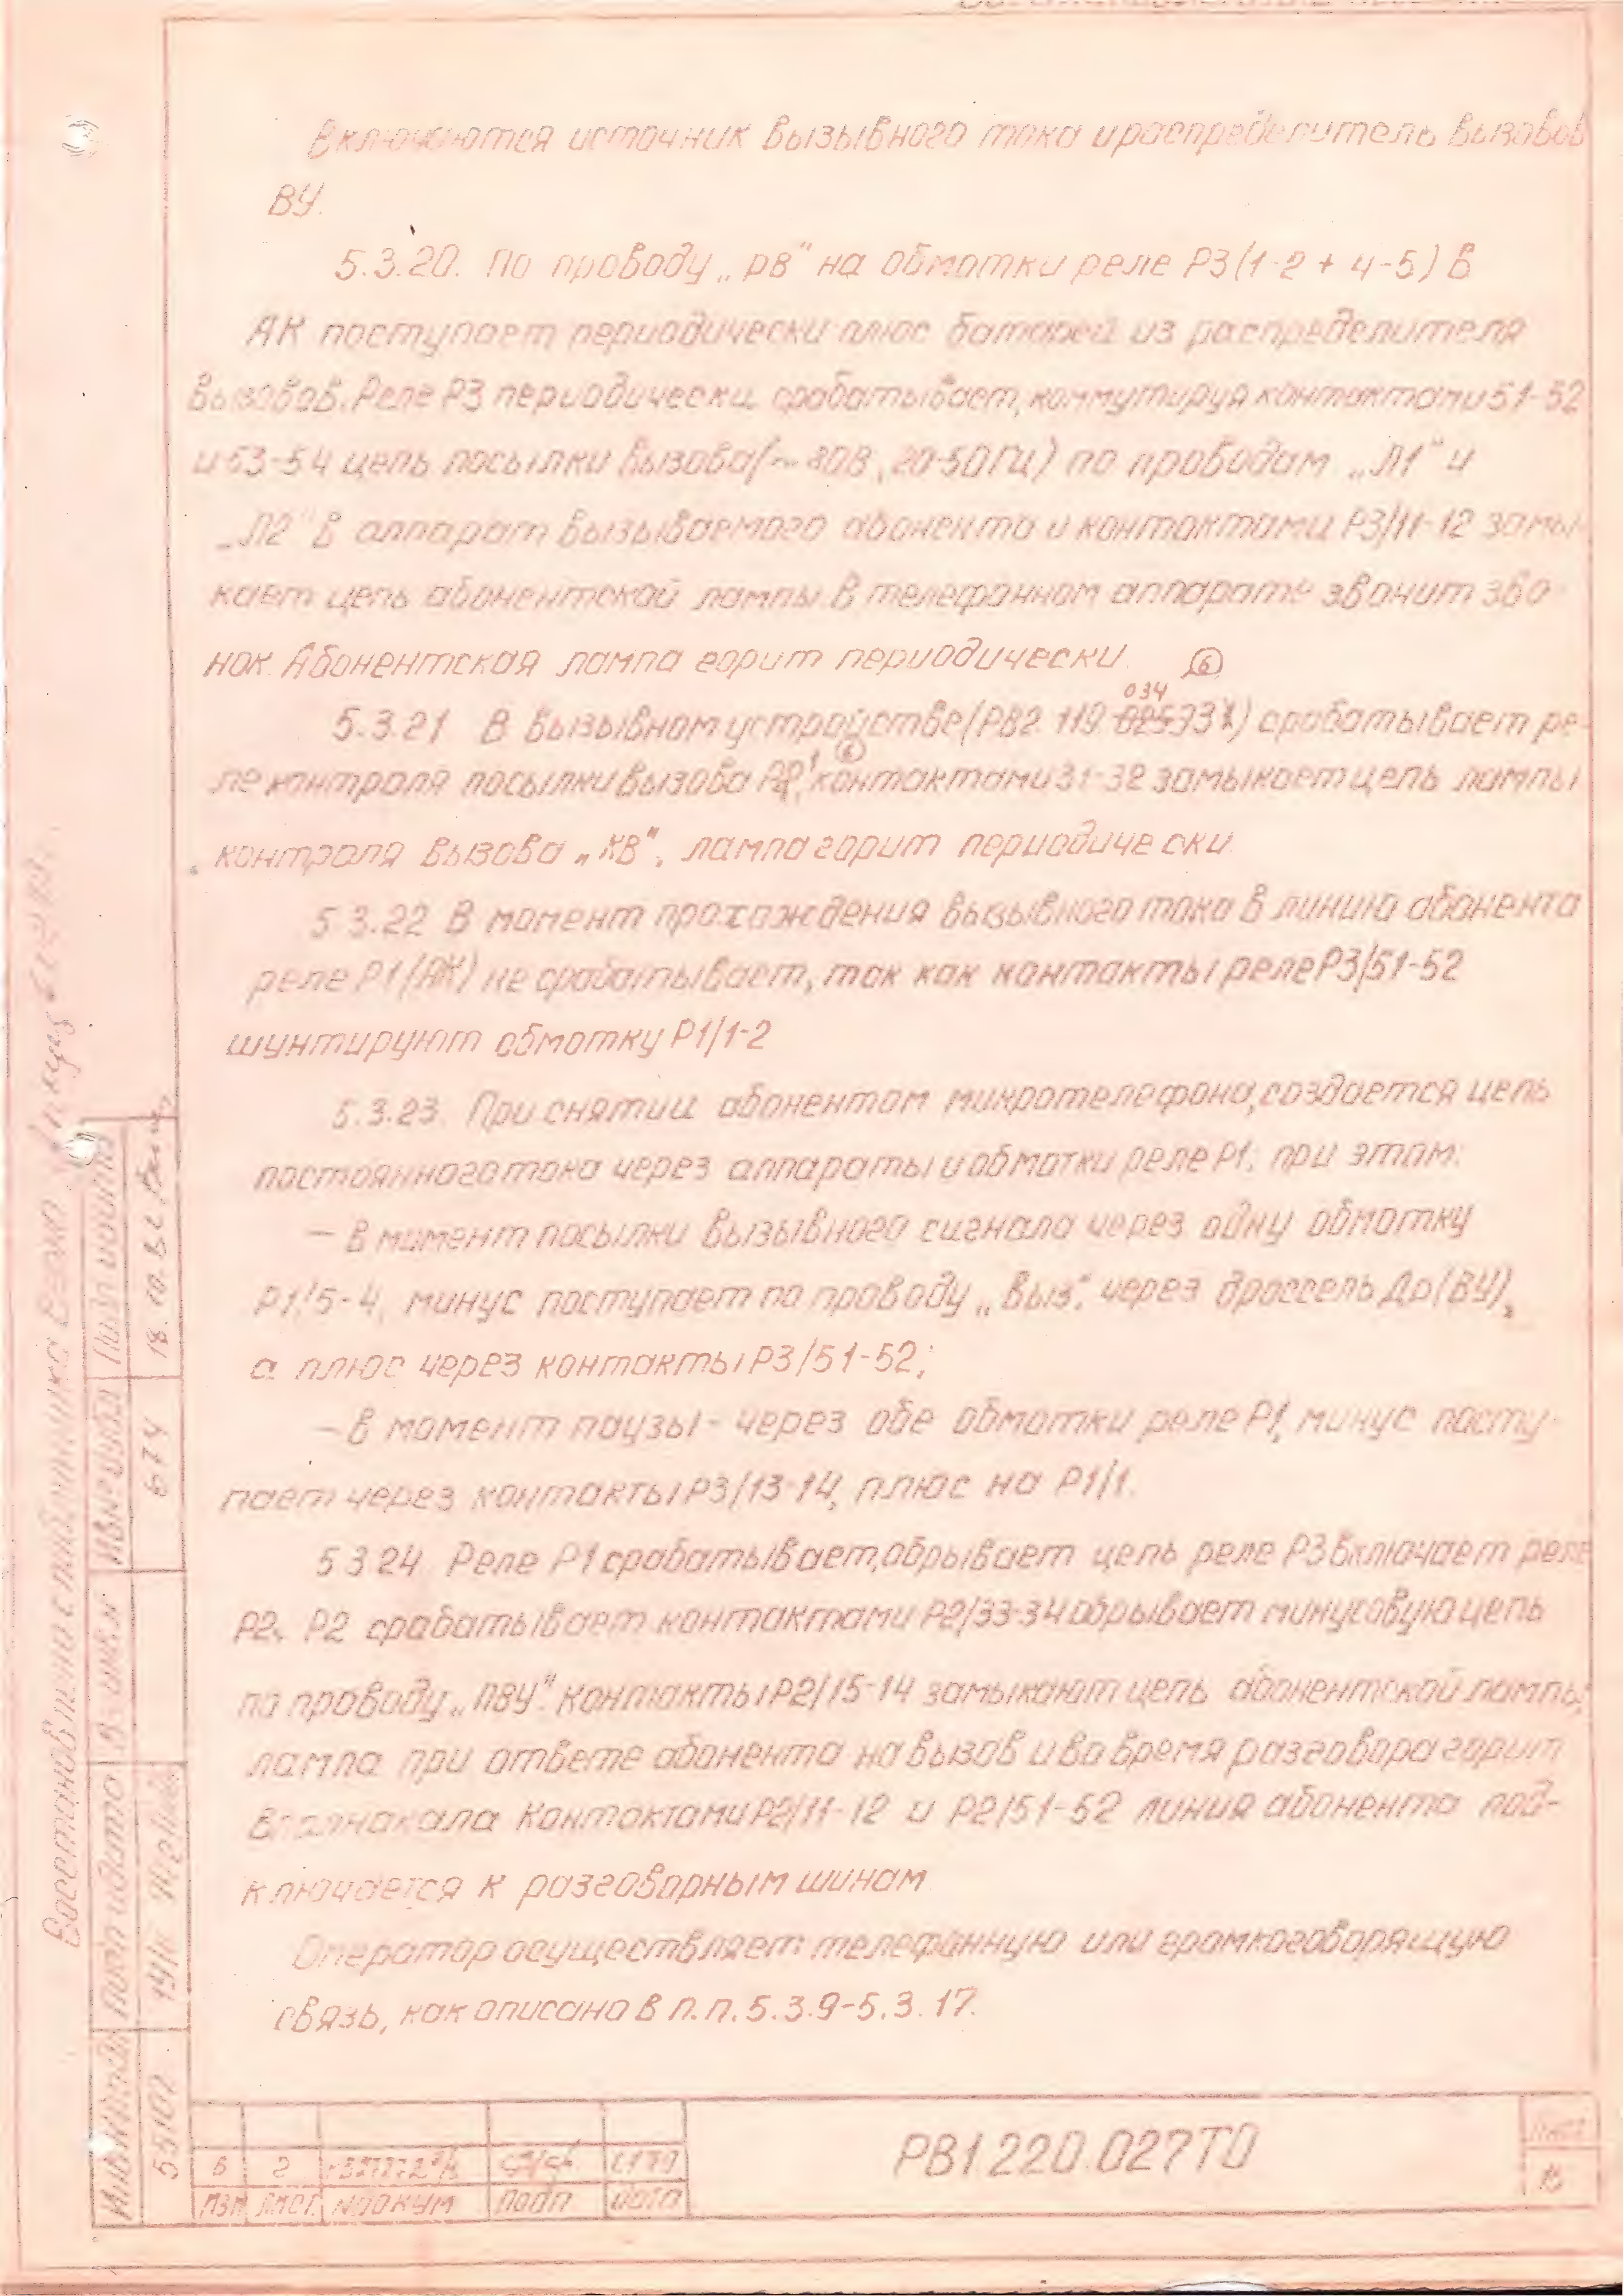 Включаются источник вызывного тока и распределитель вызовов
ВУ.
5.3.20. По проводу „РВ" на обмотки реле Р3(1-2 + 4-5) в
АК поступает периодически плюс батареи из распределителя
вызовов. Реле Р3 периодически срабатывает, коммутируя контактами 51-52
и 53-54 цепь посылки вызова (~ 80В, 20-50Гц) по проводам „Л1" и
„Л2" в аппарат вызываемого абонента и контактами Р3/11-12 замы-
кает цепь абонентской лампы. В телефонном аппарате звонит зво-
нок. Абонентская лампа горит периодически. 6
034
5.3.21 В вызывном устройстве (РВ2. 119. 025ЭЗ) срабатывает ре-
6
ле контроля посылки вызова контактами 31-32 замыкает цепь лампы
контроля вызова „КВ", лампа горит периодически.
5.3.22 В момент прохождения вызывного тока в линию абонента
реле Р1(АК) не срабатывает, так как контакты реле Р3/51-52
шунтируют обмотку Р1/1-2
5.3.23. При снятии абонентом микротелефона, создается цепь
постоянного тока через аппараты и обмотки реле Р1, при этом:
— в момент посылки вызывного сигнала через одну обмотку
Р1/5-4, минус поступает по проводу „Выз", через дроссель Др(ВУ),
а плюс через контакты Р3/51-52;
— в момент паузы - через обе обмотки реле Р1, минус посту-
пает через контакты Р3/13-14, плюс на Р1/1.
5.3.24. Реле Р1 срабатывает, обрывает цепь реле Р3 включает реле
Р2. Р2 срабатывает контактами Р2/33-34 обрывает минусовую цепь
по проводу „ПВУ". Контакты Р2/15-14 замыкают цепь абонентской лампы,
лампа при ответе абонента на вызов и во время разговора горит
вполнакала. Контактами Р2/11-12 и Р2/51-52 линия абонента под-
ключается к разговорным шинам.
Оператор осуществляет телефонную или громкоговорящую
связь, как описано в п.п. 5.3.9-5.3.17.
Восстановлена с подлинника
Инв.№ подл. Подп и дата Вз. инв.№ Инв.№ дубл. Подп. и дата
55102 674 18.10.82
6 2
Изм Лист № докум Подп Дата
РВ1 220.027ТО
Лист